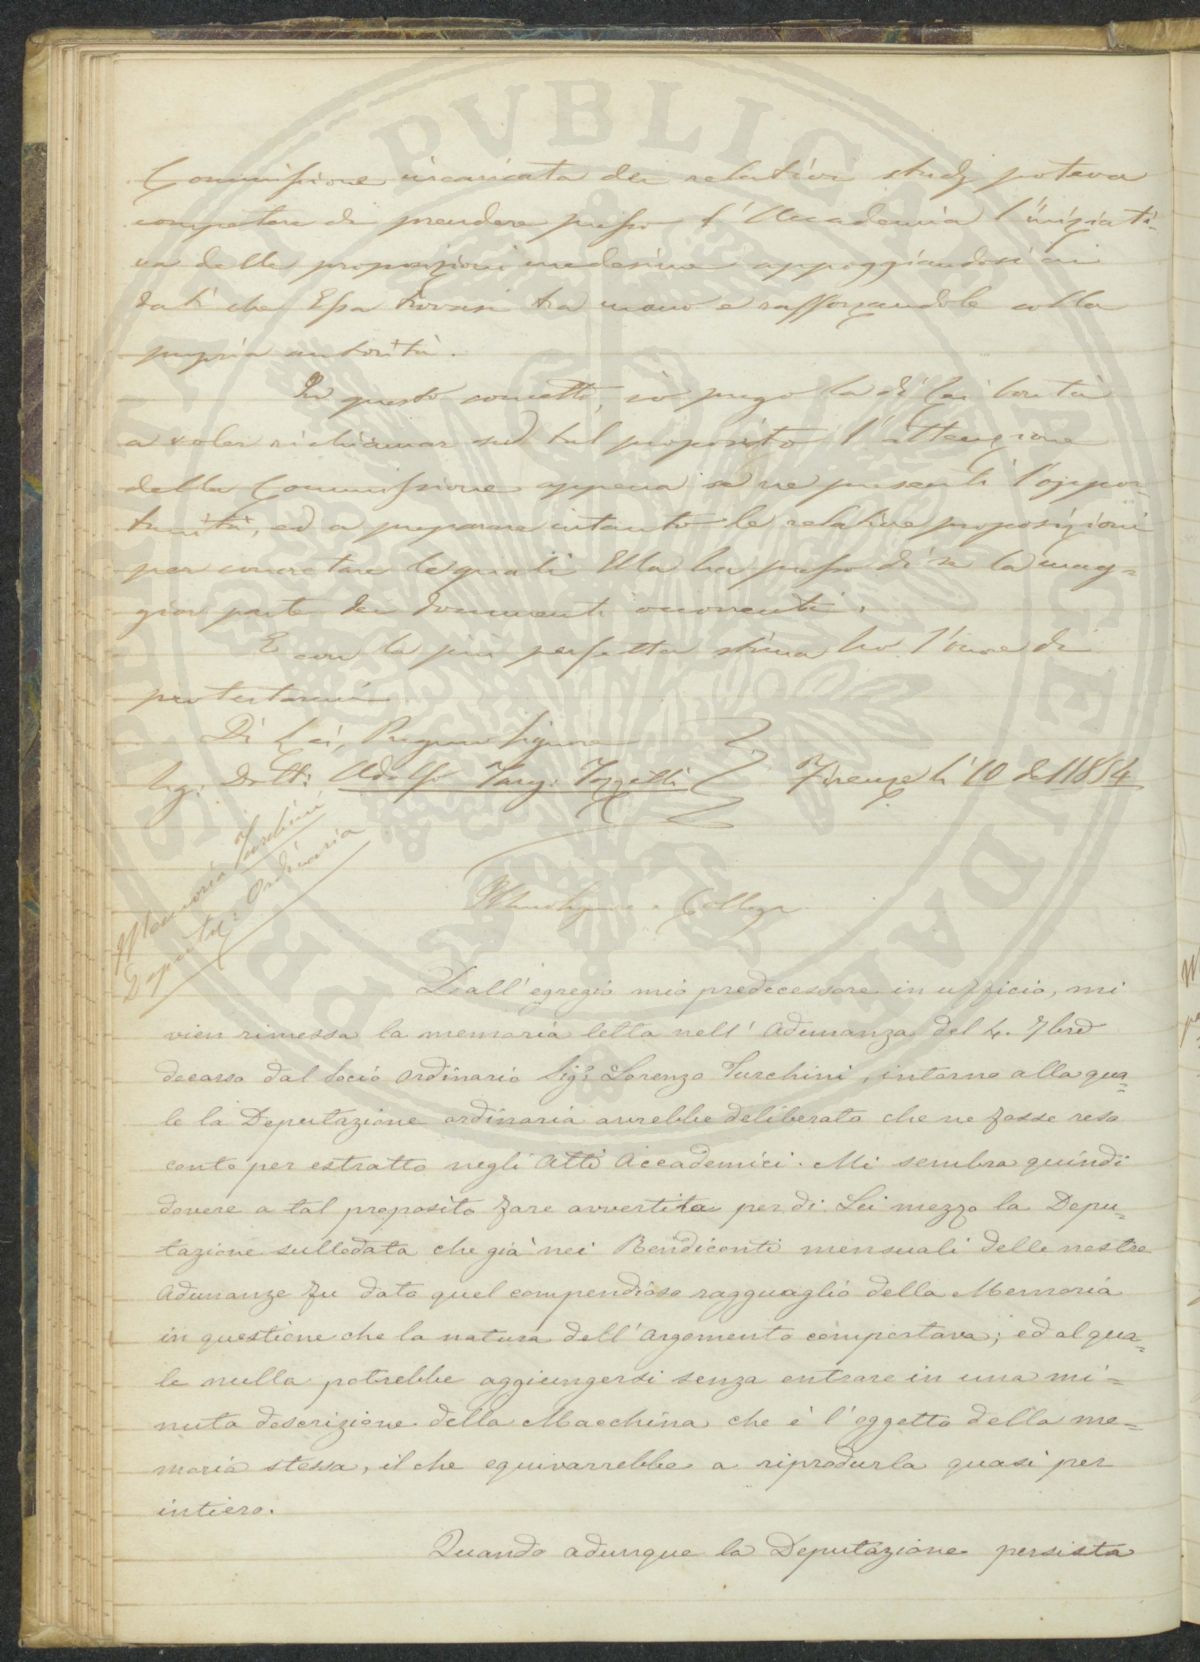 Commissione incaricata dei relativi studj poteva
competere di prendere presso l'Accademia l'iniziati-
va delle proposizioni medesime appoggiandosi ai
dati che Essa trovasi tra mano e rafforzandole colla
propria autorità.
In questo concetto, io prego la di Lei bontà
a voler richiamar sul tal proposito l'attenzione
della Commissione appena se ne presenti l'oppor-
tunità, ed a preparare intanto le relative proposizioni
per concretare le quali Ella ha presso di se la mag=
gior parte dei documenti occorrenti.
E con la più perfetta stima ho l'onore di
protestarmi
Di Lei, Pregmo Signore
Sig. Dott: Adolfo Targ. Tozzetti Firenze li 10 1854
Memoria Turchini
Deputaz. Ordinaria
Collega
Dall'egregio mio predecessore in ufficio, mi
vien rimessa la memoria letta nell'Adunanza del 4. 7bre
decorso dal Socio Ordinario Sigr. Lorenzo Turchini, intorno alla qua=
le la Deputazione ordinaria avrebbe deliberato che ne fosse reso
conto per estratto negli Atti Accademici. Mi sembra quindi
dovere a tal proposito fare avvertita per di Lei mezzo la Depu=
tazione sullodata che già nei Rendiconti mensuali delle nostre
Adunanze fu dato quel compendioso ragguaglio della Memoria
in questione che la natura dell'Argomento comportava; ed al qua=
le nulla potrebbe aggiungersi senza entrare in una mi=
nuta descrizione della Macchina che è l'oggetto della me=
moria stessa, il che equivarrebbe a riprodurla quasi per
intiero.
Quando adunque la Deputazione persista